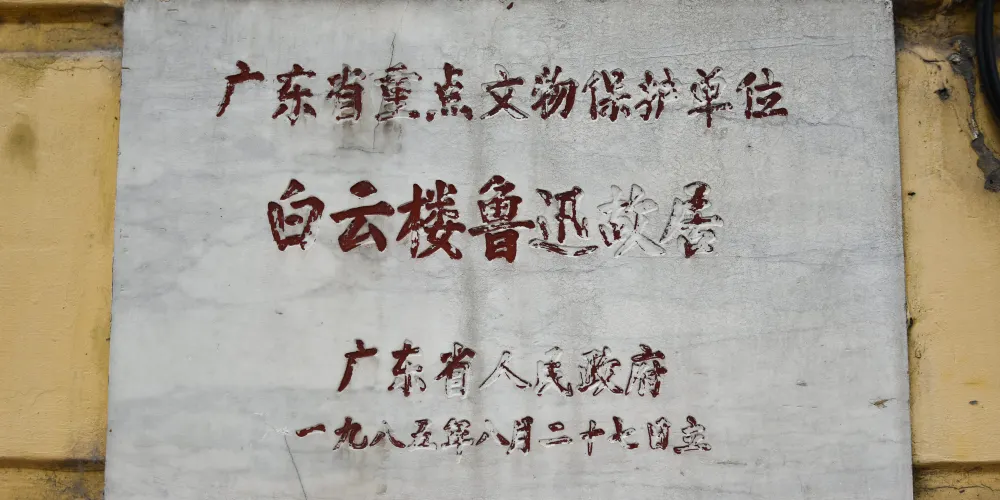 广东省重点文物保护单位
白云楼鲁迅故居
广东省人民政府
一九八五年八月二十七日立